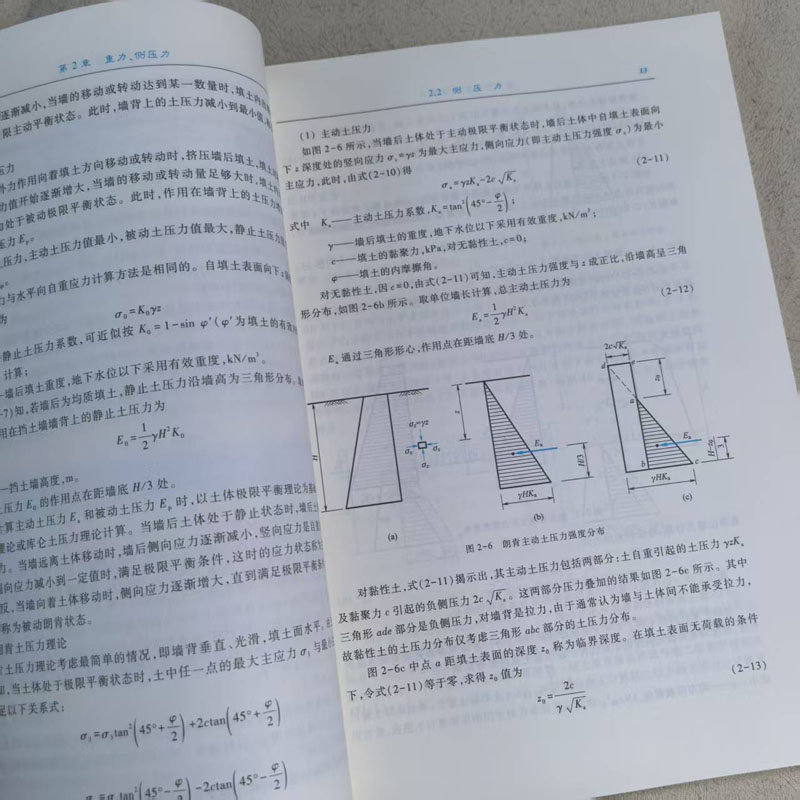 第2章 重力、侧压力
逐渐减小,当墙的移动或转动达到某一数量时,填土内
限主动平衡状态。此时,墙背上的土压力减小到最小值,
压力
外力作用向着填土方向移动或转动时,挤压墙后填土,填土
力值开始逐渐增大,当墙的移动或转动量足够大时,填土
处于被动极限平衡状态。此时,作用在墙背上的土压力
压力Eₚ。
土压力,主动土压力值最小,被动土压力值最大,静止土压力
力与水平向自重应力计算方法是相同的。自填土表面向下z
为
σ₀=K₀γz
静止土压力系数,可近似按 K₀=1-sin φ′(φ′为填土的有效
计算;
墙后填土重度,地下水位以下采用有效重度,kN/m³。
-7)知,若墙后为均质填土,静止土压力沿墙高为三角形分布。
用在挡土墙墙背上的静止土压力为
E₀=1/2γH²K₀
—挡土墙高度,m。
土压力E₀的作用点在距墙底 H/3 处。
计算主动土压力 Eₐ 和被动土压力 Eₚ 时,以土体极限平衡理论为
理论或库仑土压力理论计算。当墙后土体处于静止状态时,墙后
力。当墙远离土体移动时,墙后侧向应力逐渐减小,竖向应力是
侧向应力减小到一定值时,满足极限平衡条件,这时的应力状态
反,当墙向着土体移动时,侧向应力逐渐增大,直到满足极限平衡
称为被动朗肯状态。
朗肯土压力理论
土压力理论考虑最简单的情况,即墙背垂直、光滑,填土面水平,
知,当土体处于极限平衡状态时,土中任一点的最大主应力 σ₁ 与
足以下关系式:
σ₁=σ₃tan²(45°+φ/2)+2ctan(45°+φ/2)
tan²(45°-φ/2)-2ctan(45°-φ/2)
2.2 侧 压 力 13
(1) 主动土压力
如图 2-6 所示,当墙后土体处于主动极限平衡状态时,墙后土体中自填土表面向
下 z 深度处的竖向应力 σz=γz 为最大主应力,侧向应力(即主动土压力强度 σₐ)为最小
主应力,此时,由式(2-10)得
σₐ=γzKₐ-2c√Kₐ (2-11)
式中 Kₐ——主动土压力系数,Kₐ=tan²(45°-φ/2);
γ——墙后填土的重度,地下水位以下采用有效重度,kN/m³;
c——填土的黏聚力,kPa,对无黏性土,c=0;
φ——填土的内摩擦角。
对无黏性土,因 c=0,由式(2-11)可知,主动土压力强度与 z 成正比,沿墙高呈三角
形分布,如图 2-6b 所示。取单位墙长计算,总主动土压力为
Eₐ=1/2γH²Kₐ (2-12)
Eₐ 通过三角形形心,作用点在距墙底 H/3 处。
H
σz=γz
σₐ
σₐ
σz
(a)
z
Eₐ
H/3
γHKₐ
(b)
2c√Kₐ
d
e
z₀
a
Eₐ
b
c
H-z₀
3
γHKₐ
(c)
图 2-6 朗肯主动土压力强度分布
对黏性土,式(2-11)揭示出,其主动土压力包括两部分:土自重引起的土压力 γzKₐ
及黏聚力 c 引起的负侧压力 2c√Kₐ。这两部分压力叠加的结果如图 2-6c 所示。其中
三角形 ade 部分是负侧压力,对墙背是拉力,由于通常认为墙与土体间不能承受拉力,
故黏性土的土压力分布仅考虑三角形 abc 部分的土压力分布。
图 2-6c 中点 a 距填土表面的深度 z₀ 称为临界深度。在填土表面无荷载的条件
下,令式(2-11)等于零,求得 z₀ 值为
z₀=2c/γ√Kₐ (2-13)